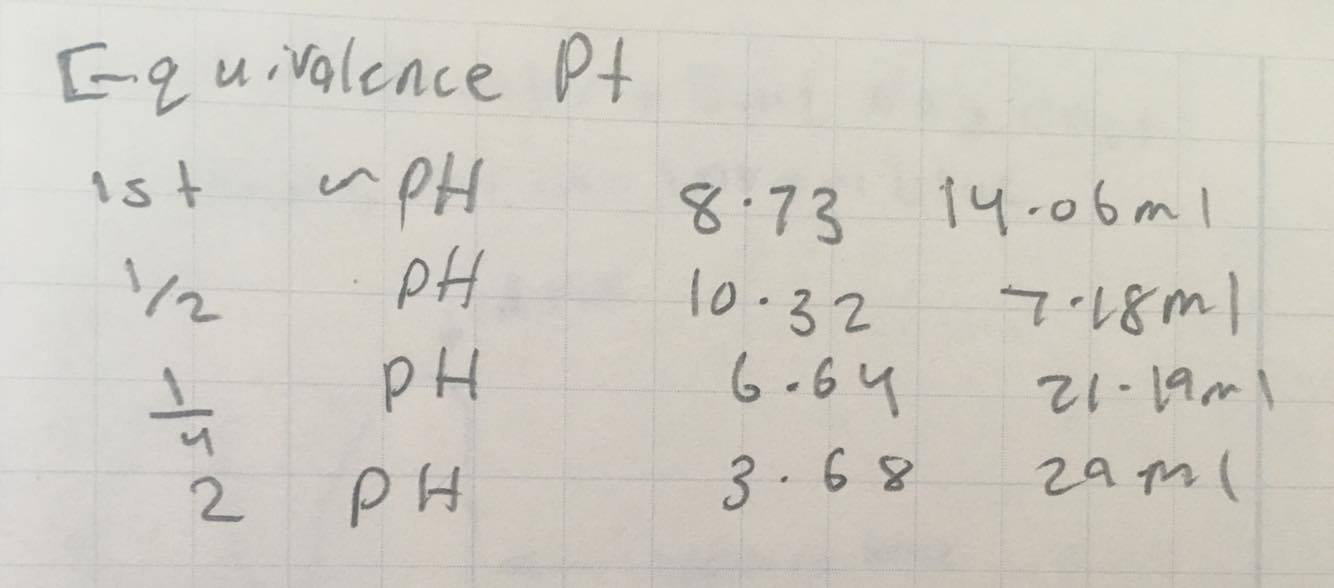 Equivalence Pt
1st ~ pH 8.73 14.06ml
1/2 pH 10.32 7.18ml
1/4 pH 6.64 21.19ml
2 pH 3.68 29ml